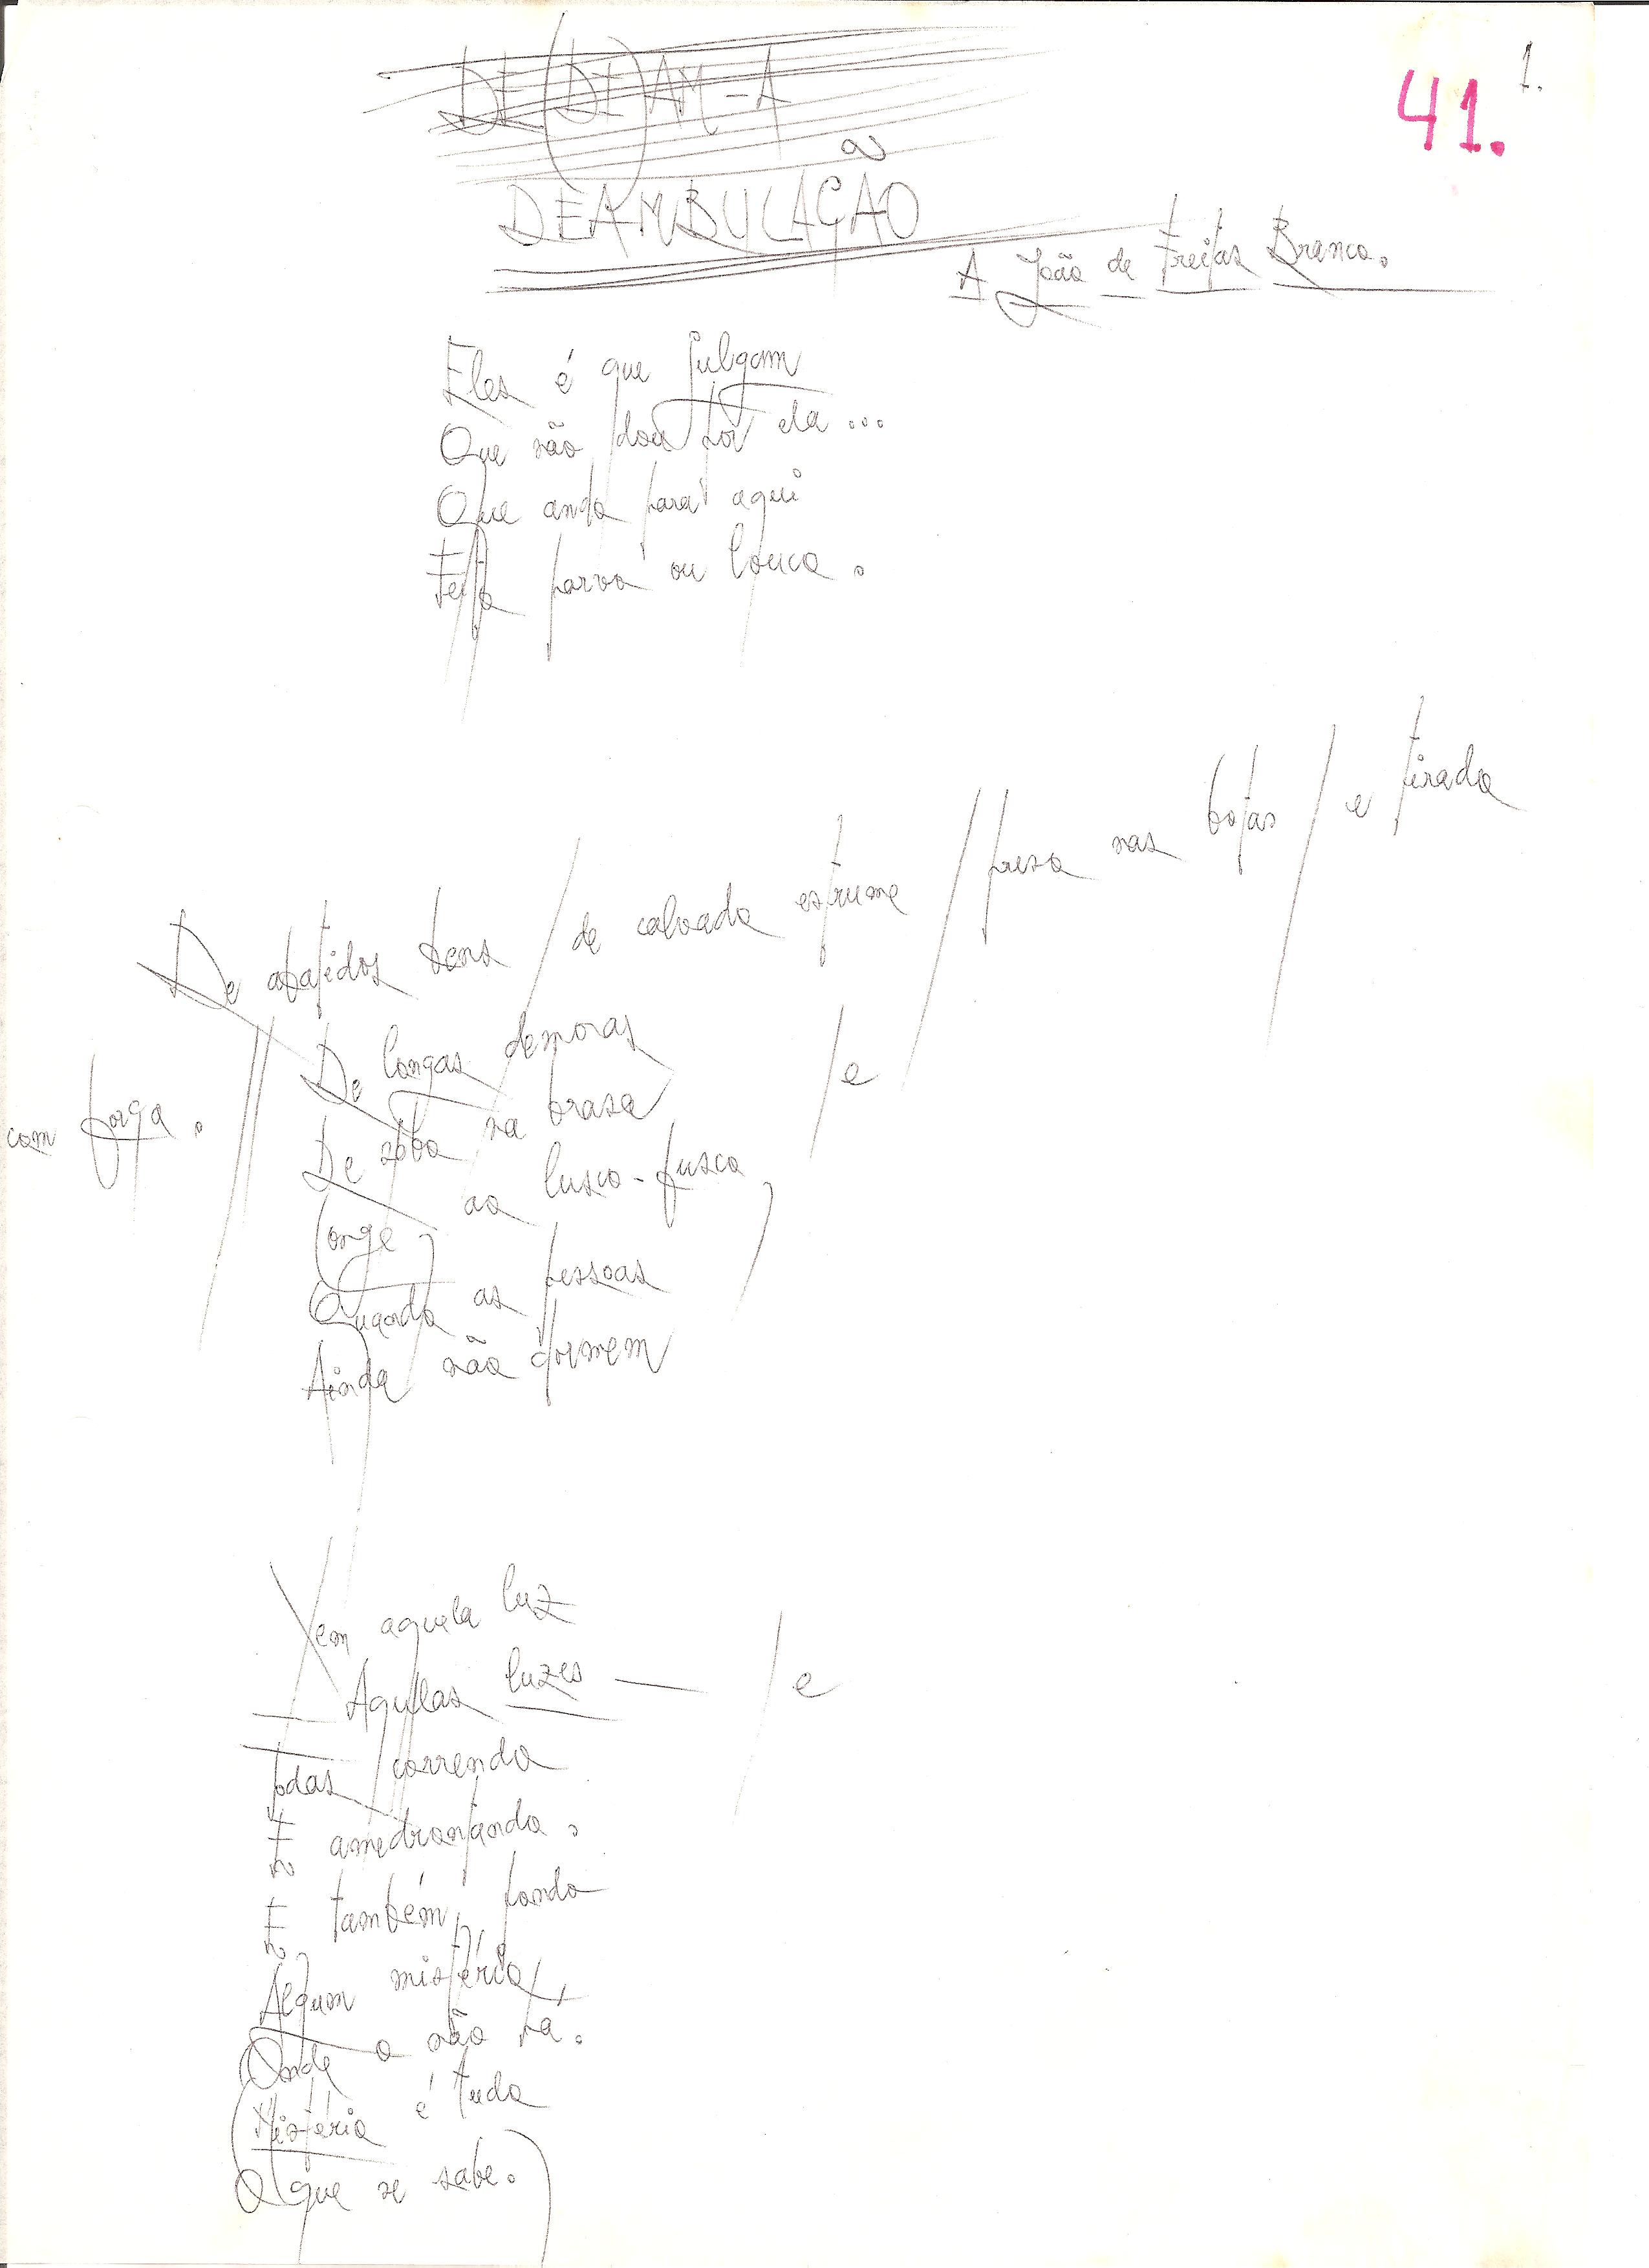 DE(DE)AM-A
41. 1.
DEAMBULAÇÃO
A João de Freitas Branco.
Eles é que julgam
Que não dou por ela...
Que ando para aqui
Feita parva ou louca.
De abafidos sons / de calcada estrume / presa nas botas / e tirada
com força. //
De longas demoras
De na brasa / e
Longe, ao lusco-fusco,
Quando as pessoas
Ainda não dormem
Vem aquela luz
— Aquelas luzes — / e
Todas correndo
E amedrontando.
E também pondo
Algum mistério,
Onde o não há.
(Mistério é tudo
O que se sabe.)